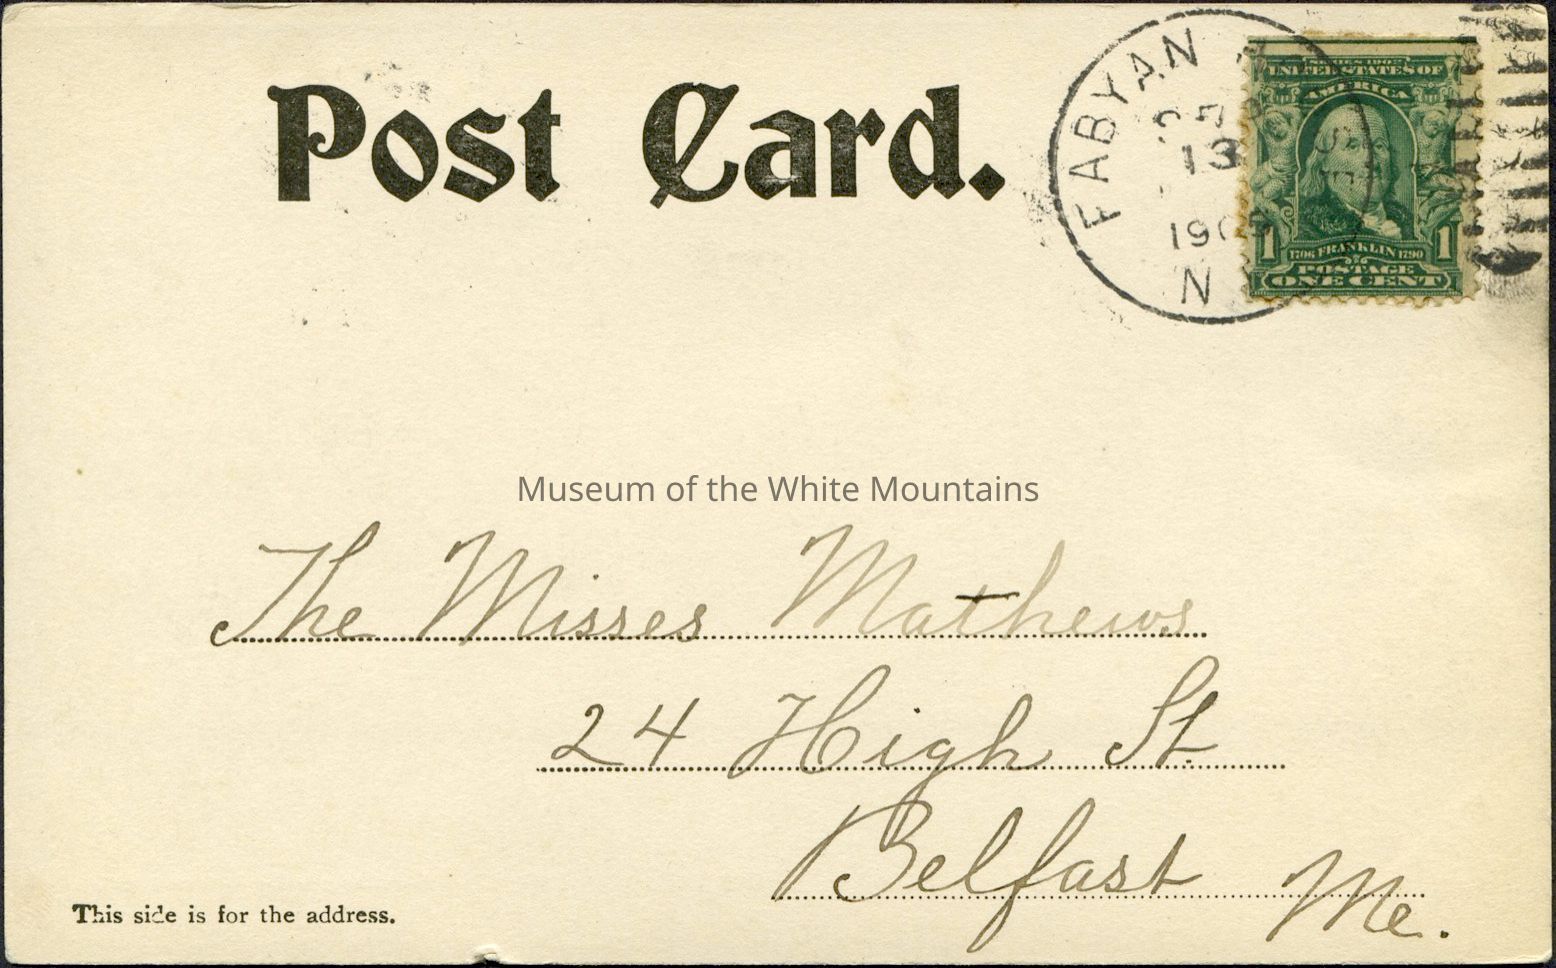 Post Card.
FABYAN
13
190
N
SERIES 1902
UNITED STATES OF
AMERICA
1 1
1706 FRANKLIN 1790
POSTAGE
ONE CENT
Museum of the White Mountains
The Misses Mathews
24 High St.
Belfast Me.
This side is for the address.